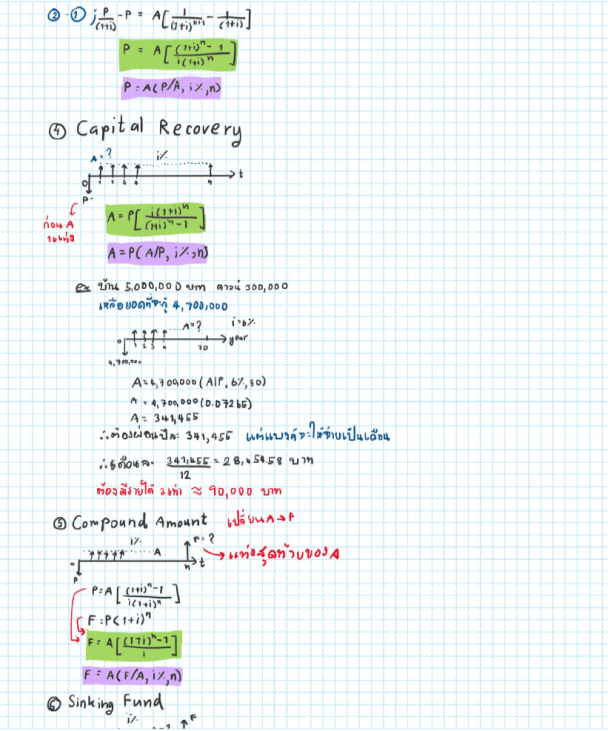 ② - ① ; P/(1+i) - P = A[1/(1+i)ⁿ⁺¹ - 1/(1+i)]
P = A[((1+i)ⁿ - 1)/(i(1+i)ⁿ)]
P = A(P/A, i%, n)
④ Capital Recovery
A = ? i%
0 1 2 3 4 n t
P
ก่อน A
A = P[i(1+i)ⁿ/((1+i)ⁿ - 1)]
A = P(A/P, i%, n)
ex บ้าน 5,000,000 บาท ดาวน์ 300,000
เหลือยอดที่จะกู้ 4,700,000
A = ? i = 6%
0 1 2 3 4 30 year
4,700,000
A = 4,700,000 (A/P, 6%, 30)
A = 4,700,000 (0.07265)
A = 341,455
∴ ต้องผ่อนปีละ 341,455 แต่แบงค์จะให้จ่ายเป็นเดือน
∴ เดือนละ 341,455/12 = 28,454.58 บาท
ต้องมีรายได้ 3 เท่า ≈ 90,000 บาท
⑤ Compound Amount เปลี่ยน A → F
i% A F = ?
0 n t
P
แท่งสุดท้ายของ A
P = A[((1+i)ⁿ - 1)/(i(1+i)ⁿ)]
F = P(1+i)ⁿ
F = A[((1+i)ⁿ - 1)/i]
F = A(F/A, i%, n)
⑥ Sinking Fund
i% F